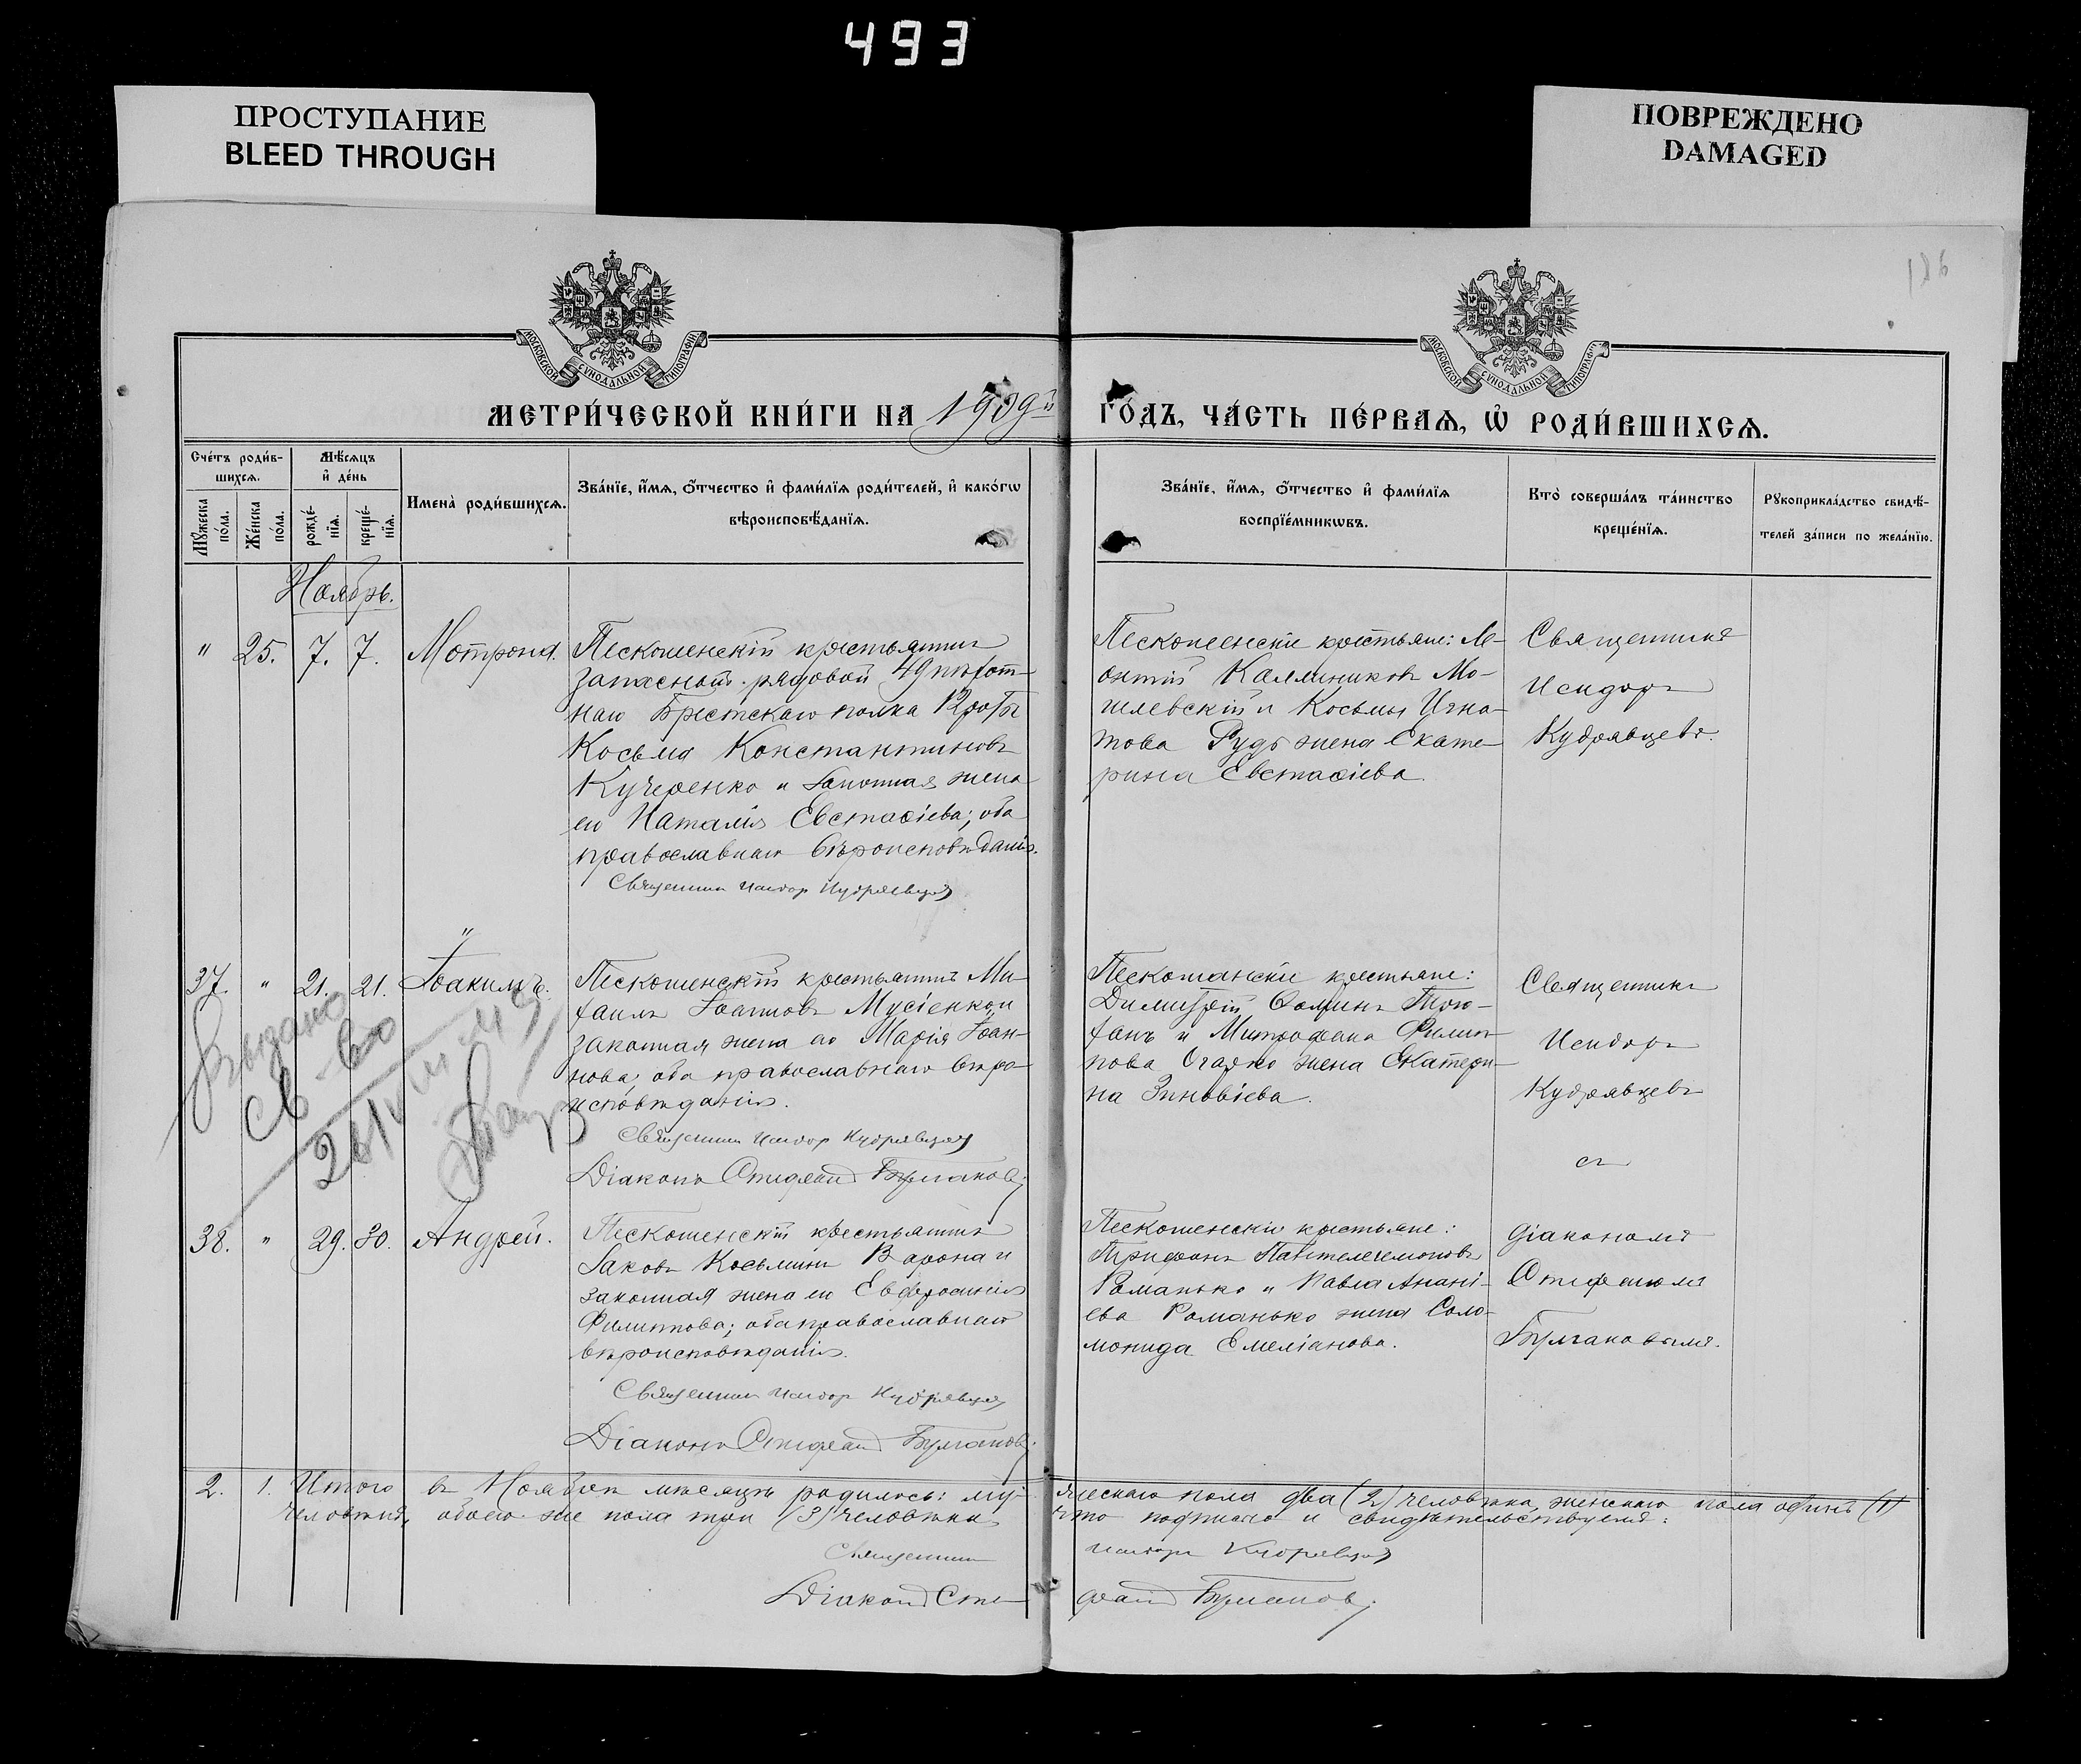 493
ПРОСТУПАНИЕ
BLEED THROUGH
ПОВРЕЖДЕНО
DAMAGED
126
МОСКОВСКОЙ СѴНОДАЛЬНОЙ ТИПОГРАФІИ
МОСКОВСКОЙ СѴНОДАЛЬНОЙ ТИПОГРАФІИ
МЕТРИ́ЧЕСКОЙ КНИ́ГИ НА 1909й ГО́ДЪ, ЧА́СТЬ ПЕ́РВАѦ, Ѽ РОДИ́ВШИХСѦ.
Сче́тъ роди́в-
шихсѧ.
Мꙋ́жеска по́ла.
Же́нска по́ла.
Мѣ́сѧцъ
и҆ де́нь
рожде́-
нїѧ.
креще́-
нїѧ.
И҆мена̀ роди́вшихсѧ.
Зва́нїе, и҆́мѧ, ѻ҆́тчество и҆ фами́лїѧ роди́телей, и҆ како́гѡ
вѣроисповѣ́данїѧ.
Зва́нїе, и҆́мѧ, ѻ҆́тчество и҆ фами́лїѧ
воспрїе́мникѡвъ.
Кто̀ соверша́лъ та́инство
креще́нїѧ.
Рꙋкоприкла́дство свидѣ́-
телей за́писи по жела́нїю.
Ноябрь.
" 25. 7. 7. Мотрона.
Пескошенскій крестьянинъ
запасный рядовой 49 пѣхот-
наго Брестскаго полка 12 роты
Косьма Константиновъ
Кучеренко и законная жена
его Наталія Евстафіева; оба
православнаго вѣроисповѣданія.
Священникъ Исидоръ Кудрявцевъ
Пескошенскіе крестьяне: Ле-
онтій Каллиниковъ Мо-
гилевскій и Косьмы Игна-
това Рудь жена Екате-
рина Евстафіева.
Священникъ
Исидоръ
Кудрявцевъ.
"
37. " 21. 21. Іоакимъ.
Пескошенскій крестьянинъ Ми-
хаилъ Іоанновъ Мусіенко и
законная жена его Марія Іоан-
нова; оба православнаго вѣро-
исповѣданія.
Священникъ Исидоръ Кудрявцевъ
Діаконъ Стефанъ Булгаковъ
Выдано
св-во
Пескошенскіе крестьяне:
Димитрій
и Митрофана Филип-
пова жена Екатери-
на Зиновіева.
Священникъ
Исидоръ
Кудрявцевъ
съ
38. " 29. 30. Андрей.
Пескошенскій крестьянинъ
Іаковъ Косьминъ Ворона и
законная жена его Евфросинія
Филиппова; оба православнаго
вѣроисповѣданія.
Священникъ Исидоръ Кудрявцевъ
Діаконъ Стефанъ Булгаковъ
Пескошенскіе крестьяне:
Трифонъ Пантелеимоновъ
Романько и Павла Анані-
ева Романько жена Соло-
монида Емеліанова.
діакономъ
Стефаномъ
Булгаковымъ.
2. 1. Итого въ Ноябрѣ мѣсяцѣ родилось: му- жескаго пола два (2) человѣка, женскаго пола одинъ (1)
человѣкъ, обоего же пола три (3) человѣка, что подписью и свидѣтельствуемъ:
Священникъ Исидоръ Кудрявцевъ
Діаконъ Сте- фанъ Булгаковъ